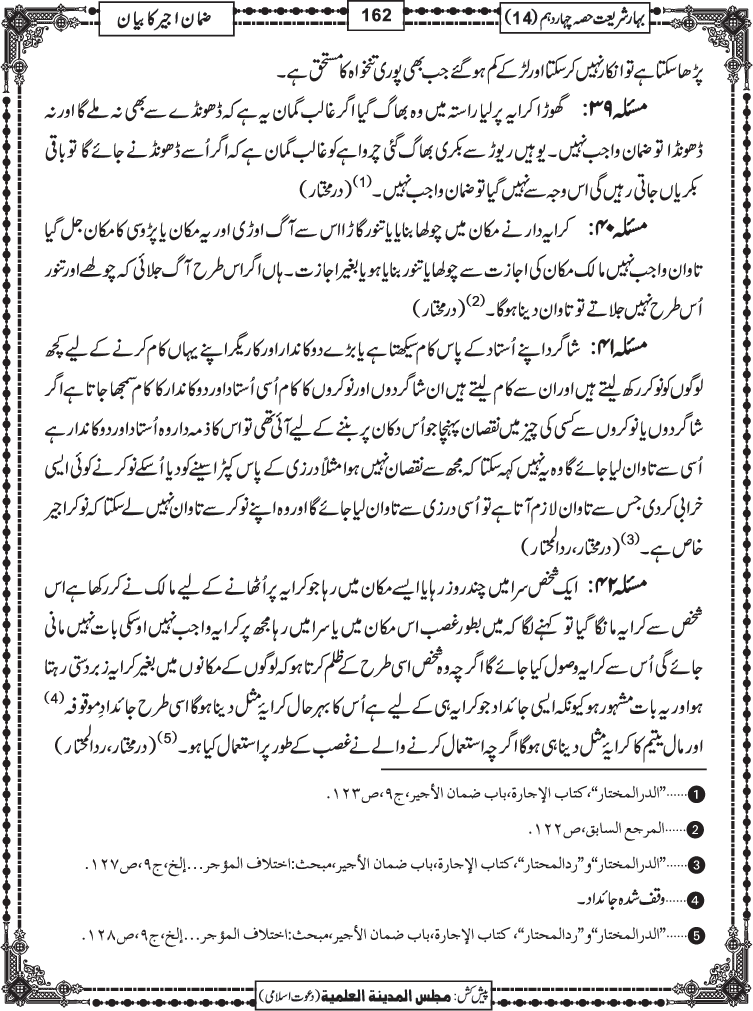 بہارِ شریعت حصہ چہاردہم (14)
162
ضمان اجیر کا بیان
پڑھا سکتا ہے تو انکار نہیں کر سکتا اور لڑکے کم ہو گئے جب بھی پوری تنخواہ کا مستحق ہے۔
مسئلہ ۳۹: گھوڑا کرایہ پر لیا راستہ میں وہ بھاگ گیا اگر غالب گمان یہ ہے کہ ڈھونڈے سے بھی نہ ملے گا اور نہ
ڈھونڈا تو ضمان واجب نہیں۔ یوہیں ریوڑ سے بکری بھاگ گئی چرواہے کو غالب گمان ہے کہ اگر اُسے ڈھونڈنے جائے گا تو باقی
بکریاں جاتی رہیں گی اس وجہ سے نہیں گیا تو ضمان واجب نہیں۔(1) (درمختار)
مسئلہ ۴۰: کرایہ دار نے مکان میں چولھا بنایا یا تنور گاڑا اس سے آگ اوڑی اور یہ مکان یا پڑوسی کا مکان جل گیا
تاوان واجب نہیں مالک مکان کی اجازت سے چولھا یا تنور بنایا ہو یا بغیر اجازت۔ ہاں اگر اس طرح آگ جلائی کہ چولھے اور تنور
اُس طرح نہیں جلاتے تو تاوان دینا ہوگا۔(2) (درمختار)
مسئلہ ۴۱: شاگرد اپنے اُستاد کے پاس کام سیکھتا ہے یا بڑے دوکاندار اور کاریگر اپنے یہاں کام کرنے کے لیے کچھ
لوگوں کو نوکر رکھ لیتے ہیں اور ان سے کام لیتے ہیں ان شاگردوں اور نوکروں کا کام اُسی اُستاد اور دوکاندار کا کام سمجھا جاتا ہے اگر
شاگردوں یا نوکروں سے کسی کی چیز میں نقصان پہنچا جو اُس دکان پر بننے کے لیے آئی تھی تو اس کا ذمہ دار وہ اُستاد اور دوکاندار ہے
اُسی سے تاوان لیا جائے گا وہ یہ نہیں کہہ سکتا کہ مجھ سے نقصان نہیں ہوا مثلاً درزی کے پاس کپڑا سینے کو دیا اُسکے نوکر نے کوئی ایسی
خرابی کر دی جس سے تاوان لازم آتا ہے تو اُسی درزی سے تاوان لیا جائے گا اور وہ اپنے نوکر سے تاوان نہیں لے سکتا کہ نوکر اجیر
خاص ہے۔(3) (درمختار، ردالمحتار)
مسئلہ ۴۲: ایک شخص سرا میں چند روز رہا یا ایسے مکان میں رہا جو کرایہ پر اُٹھانے کے لیے مالک نے کر رکھا ہے اس
شخص سے کرایہ مانگا گیا تو کہنے لگا کہ میں بطور غصب اس مکان میں یا سرا میں رہا مجھ پر کرایہ واجب نہیں اوسکی بات نہیں مانی
جائے گی اُس سے کرایہ وصول کیا جائے گا اگرچہ وہ شخص اسی طرح کے ظلم کرتا ہو کہ لوگوں کے مکانوں میں بغیر کرایہ زبردستی رہتا
ہو اور یہ بات مشہور ہو کیونکہ ایسی جائداد جو کرایہ ہی کے لیے ہے اُس کا بہر حال کرایۂ مثل دینا ہوگا اسی طرح جائدادِ موقوفہ(4)
اور مال یتیم کا کرایۂ مثل دینا ہی ہوگا اگرچہ استعمال کرنے والے نے غصب کے طور پر استعمال کیا ہو۔(5) (درمختار، ردالمحتار)
1......”الدرالمختار“، کتاب الإجارة، باب ضمان الأجیر، ج۹، ص۱۲۳.
2......المرجع السابق، ص۱۲۲.
3......”الدرالمختار“ و ”ردالمحتار“، کتاب الإجارة، باب ضمان الأجیر، مبحث: اختلاف المؤجر...إلخ، ج۹، ص۱۲۷.
4......وقف شدہ جائداد۔
5......”الدرالمختار“ و ”ردالمحتار“، کتاب الإجارة، باب ضمان الأجیر، مبحث: اختلاف المؤجر...إلخ، ج۹، ص۱۲۸.
پیش کش: مجلس المدینة العلمیة (دعوت اسلامی)